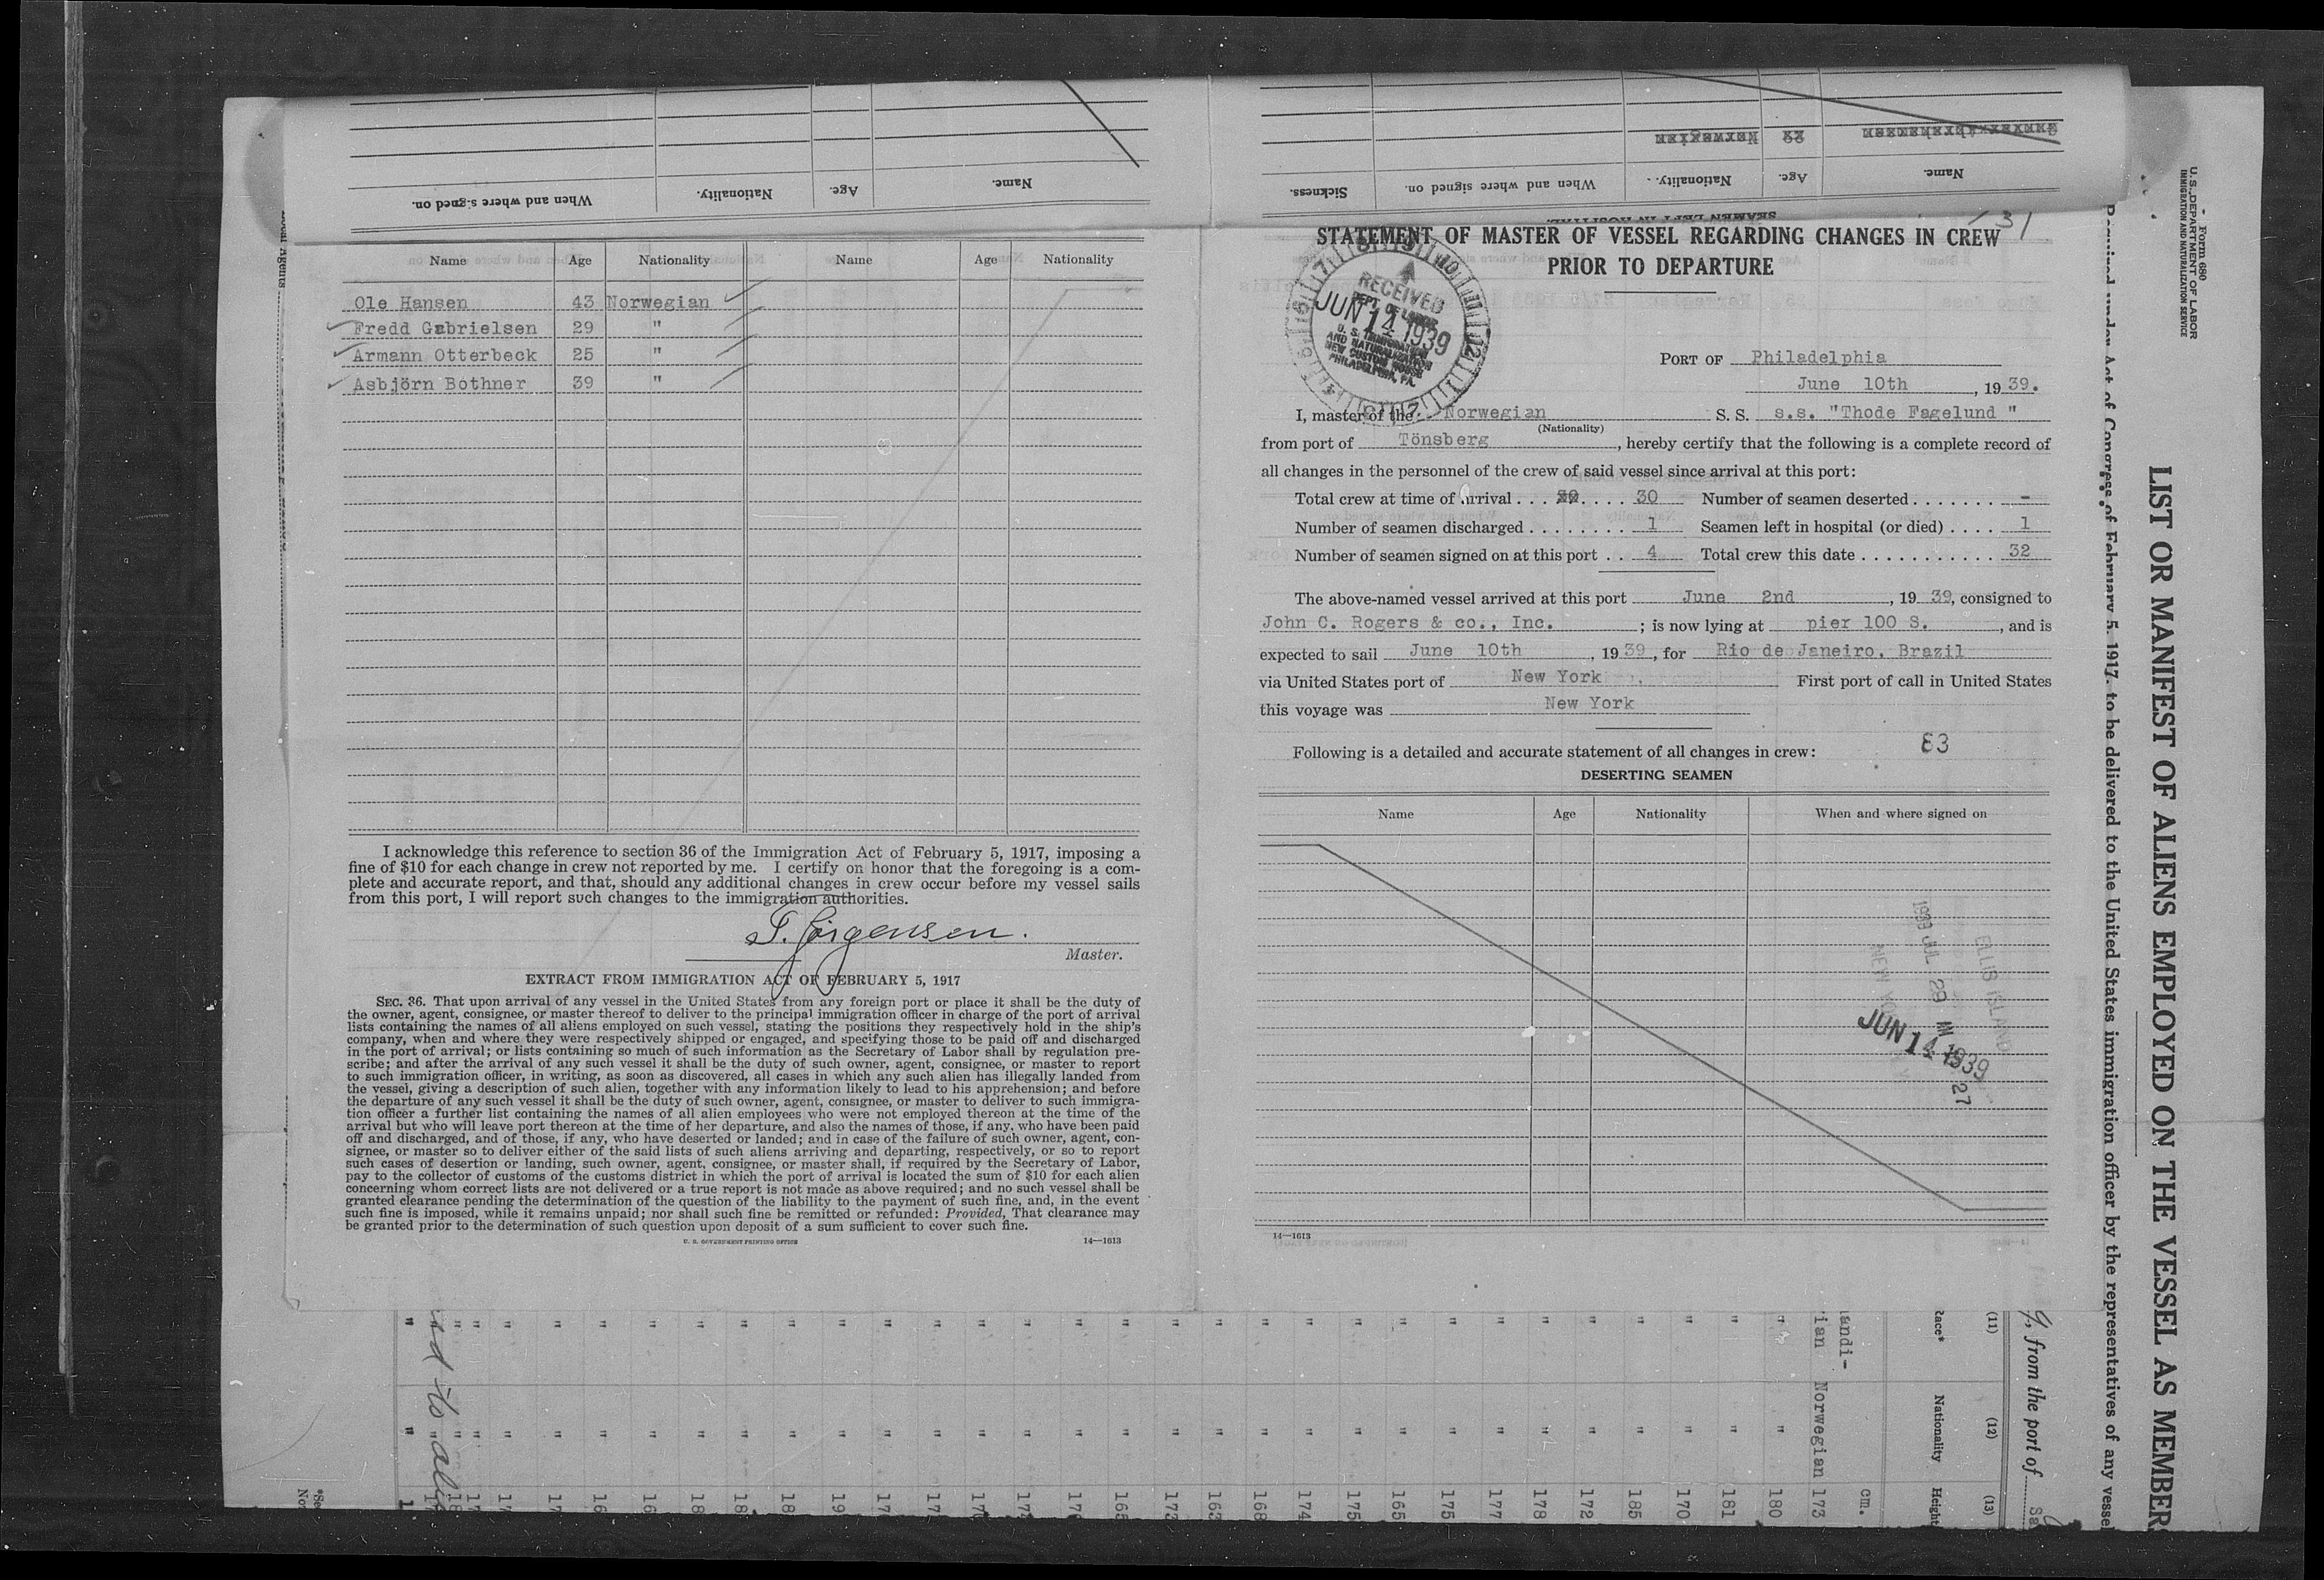 Name. Age. Nationality. When and where signed on.
Name. Age. Nationality. When and where signed on. Sickness.
SEAMEN LEFT IN HOSPITAL.
Name Age Nationality Name Age Nationality
Ole Hansen 43 Norwegian
Fredd Gabrielsen 29 "
Armann Otterbeck 25 "
Asbjörn Bothner 39 "
I acknowledge this reference to section 36 of the Immigration Act of February 5, 1917, imposing a
fine of $10 for each change in crew not reported by me. I certify on honor that the foregoing is a com-
plete and accurate report, and that, should any additional changes in crew occur before my vessel sails
from this port, I will report such changes to the immigration authorities.
T. Jörgensen.
Master.
EXTRACT FROM IMMIGRATION ACT OF FEBRUARY 5, 1917
SEC. 36. That upon arrival of any vessel in the United States from any foreign port or place it shall be the duty of
the owner, agent, consignee, or master thereof to deliver to the principal immigration officer in charge of the port of arrival
lists containing the names of all aliens employed on such vessel, stating the positions they respectively hold in the ship's
company, when and where they were respectively shipped or engaged, and specifying those to be paid off and discharged
in the port of arrival; or lists containing so much of such information as the Secretary of Labor shall by regulation pre-
scribe; and after the arrival of any such vessel it shall be the duty of such owner, agent, consignee, or master to report
to such immigration officer, in writing, as soon as discovered, all cases in which any such alien has illegally landed from
the vessel, giving a description of such alien, together with any information likely to lead to his apprehension; and before
the departure of any such vessel it shall be the duty of such owner, agent, consignee, or master to deliver to such immigra-
tion officer a further list containing the names of all alien employees who were not employed thereon at the time of the
arrival but who will leave port thereon at the time of her departure, and also the names of those, if any, who have been paid
off and discharged, and of those, if any, who have deserted or landed; and in case of the failure of such owner, agent, con-
signee, or master so to deliver either of the said lists of such aliens arriving and departing, respectively, or so to report
such cases of desertion or landing, such owner, agent, consignee, or master shall, if required by the Secretary of Labor,
pay to the collector of customs of the customs district in which the port of arrival is located the sum of $10 for each alien
concerning whom correct lists are not delivered or a true report is not made as above required; and no such vessel shall be
granted clearance pending the determination of the question of the liability to the payment of such fine, and, in the event
such fine is imposed, while it remains unpaid; nor shall such fine be remitted or refunded: Provided, That clearance may
be granted prior to the determination of such question upon deposit of a sum sufficient to cover such fine.
U. S. GOVERNMENT PRINTING OFFICE 14—1613
31
STATEMENT OF MASTER OF VESSEL REGARDING CHANGES IN CREW
PRIOR TO DEPARTURE
RECEIVED
DEPT. OF LABOR
JUN 14 1939
U. S. IMMIGRATION
AND NATURALIZATION
NEW CUSTOM HOUSE
PHILADELPHIA, PA.
PORT OF Philadelphia
June 10th, 1939.
I, master of the Norwegian S. S. s.s. "Thode Fagelund "
(Nationality)
from port of Tönsberg, hereby certify that the following is a complete record of
all changes in the personnel of the crew of said vessel since arrival at this port:
Total crew at time of arrival . . . . . . . 30 Number of seamen deserted . . . . . . . -
Number of seamen discharged . . . . . . . . 1 Seamen left in hospital (or died) . . . . 1
Number of seamen signed on at this port . . 4 Total crew this date . . . . . . . . . . . 32
The above-named vessel arrived at this port June 2nd, 1939, consigned to
John C. Rogers & co., Inc. ; is now lying at pier 100 S., and is
expected to sail June 10th, 1939, for Rio de Janeiro, Brazil
via United States port of New York First port of call in United States
this voyage was New York
Following is a detailed and accurate statement of all changes in crew: 83
DESERTING SEAMEN
Name Age Nationality When and where signed on
1939 JUL 29
ELLIS ISLAND
NEW YORK
JUN 14 1939
27
14—1613
Form 680
U. S. DEPARTMENT OF LABOR
IMMIGRATION AND NATURALIZATION SERVICE
LIST OR MANIFEST OF ALIENS EMPLOYED ON THE VESSEL AS MEMBERS
Required under Act of Congress of February 5, 1917, to be delivered to the United States immigration officer by the representatives of any vessel
from the port of
(11) (12) (13)
Race* Nationality Height
cm.
Norwegian 173
" " 180
" " 181
" " 170
" " 185
" " 172
" " 178
" " 177
" " 175
" " 165
" " 175
" " 174
" " 168
" " 163
" " 173
" " 165